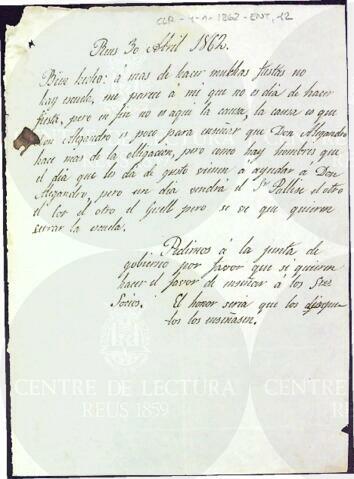 CLR-4-1-1862-ENT, 12
Reus 30 Abril 1862.
Bien hecho: á mas de hacer muchas fiestas no
hay escuela, me parece á mi que no es dia de hacer
fiesta, pero en fin no es aqui la causa, la causa es que
Don Alejandro es poco para enseñar que Don Alejandro
hace mas de la obligacion, pero como hay hombres que
el dia que les da de gusto vienen á ayudar á Don
Alejandro, pero un dia vendra el Sr Pallis el otro
el Cor el otro el Grell pero se ve que quieren
serrar la escuela.
Pedimos á la junta de
gobierno por favor que si quieren
hacer el favor de enseñar á los Sres
Socios. El honor seria que los
los enseñasen.
CENTRE DE LECTURA
REUS 1859
CENTRE DE LECTURA
REUS 1859